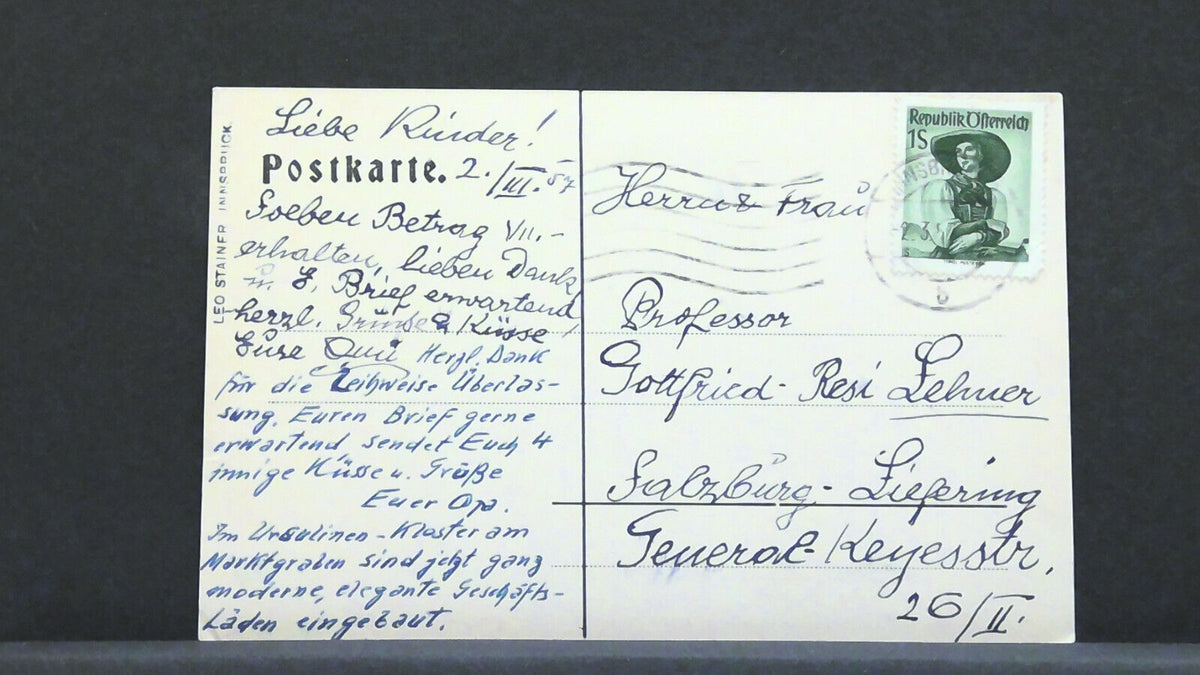 Liebe Kinder!
Postkarte. 2./III. 57
Soeben Betrag
erhalten, lieben Dank,
u. E. Brief erwartend
herzl. Grüße & Küsse
Eure Omi Herzl. Dank
für die Leihweise Überlas-
sung. Euren Brief gerne
erwartend, sendet Euch 4
innige Küsse u. Grüße
Euer Opa.
Im Ursulinen-Kloster am
Marktgraben sind jetzt ganz
moderne, elegante Geschäfts-
Läden eingebaut.
LEO STAINER INNSBRUCK
Republik Österreich
1S
Herrn u Frau
Professor
Gottfried - Resi Lehner
Salzburg - Liefering
General-Keyesstr.
26/II.